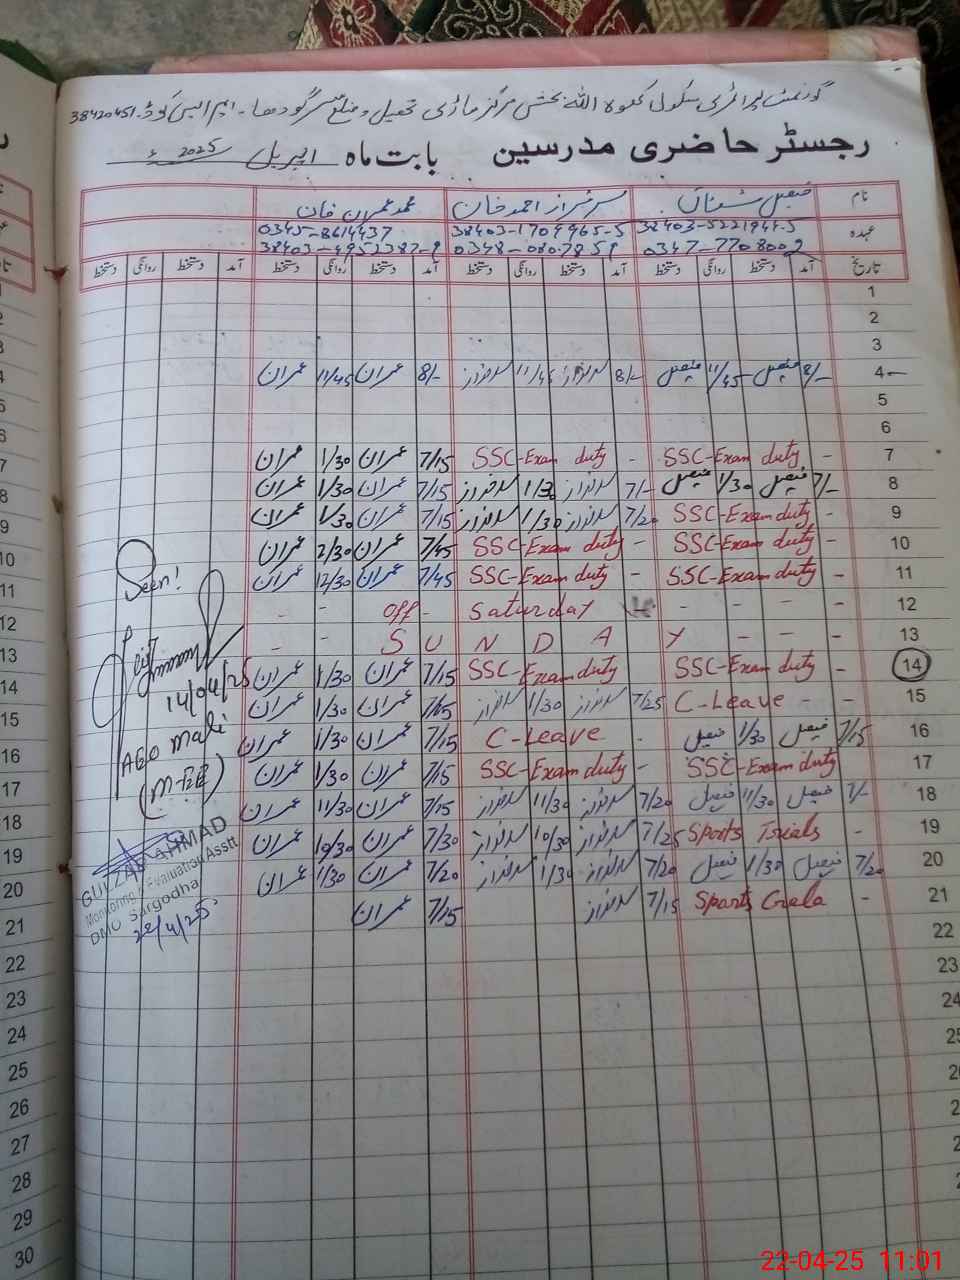 گورنمنٹ پرائمری سکول کھوہ اللہ بخش مرکز ماڑی تحصیل و ضلع سرگودھا - ایم ایس کوڈ 38420451
رجسٹر حاضری مدرسین بابت ماہ اپریل 2025ء
نام فیصل سرفراز احمد خان محمد عمران خان
38403-5221944-5 38403-1704965-5 0345-8614437
عہدہ 0347-7708002 0348-0807859 38403-4952387-9
تاریخ آمد دستخط روانگی دستخط آمد دستخط روانگی دستخط آمد دستخط روانگی دستخط آمد دستخط روانگی دستخط
1
2
3
4 8/- فیصل 11/45 فیصل 8/- سرفراز 11/45 سرفراز 8/- عمران 11/45 عمران
5
6
7 - SSC-Exam duty - SSC-Exam duty 7/15 عمران 1/30 عمران
8 7/- فیصل 1/30 فیصل 7/- سرفراز 1/30 سرفراز 7/15 عمران 1/30 عمران
9 - SSC-Exam duty 7/20 سرفراز 1/30 سرفراز 7/15 عمران 1/30 عمران
10 - SSC-Exam duty - SSC-Exam duty 7/45 عمران 2/30 عمران
11 - SSC-Exam duty - SSC-Exam duty 7/45 عمران 12/30 عمران
12 - - off - Saturday - - - - -
13 - - S U N D A Y - - -
14 - SSC-Exam duty - SSC-Exam duty 7/15 عمران 1/30 عمران
15 - - C-Leave 7/25 سرفراز 1/30 سرفراز عمران 1/30 عمران
16 7/15 فیصل 1/30 فیصل - C-Leave 7/15 عمران 1/30 عمران
17 SSC-Exam duty - SSC-Exam duty 7/15 عمران 1/30 عمران
18 7/- فیصل 11/30 فیصل 7/20 سرفراز 11/30 سرفراز 7/15 عمران 11/30 عمران
19 - Sports Trials 7/25 سرفراز 10/30 سرفراز 7/30 عمران 10/30 عمران
20 7/20 فیصل 1/30 فیصل 7/20 سرفراز 1/30 سرفراز 7/20 عمران 1/30 عمران
21 - Sports Gala 7/15 سرفراز 7/15 عمران
22
23
24
25
Seen!
14/04/25
AEO Mari
(M-EE)
GULZAR AHMAD
Monitoring & Evaluation Asstt
DMO Sargodha
22/4/25
1
2
3
4
5
6
7
8
9
10
11
12
13
14
15
16
17
18
19
20
21
22
23
24
25
26
27
28
29
30
22-04-25 11:01